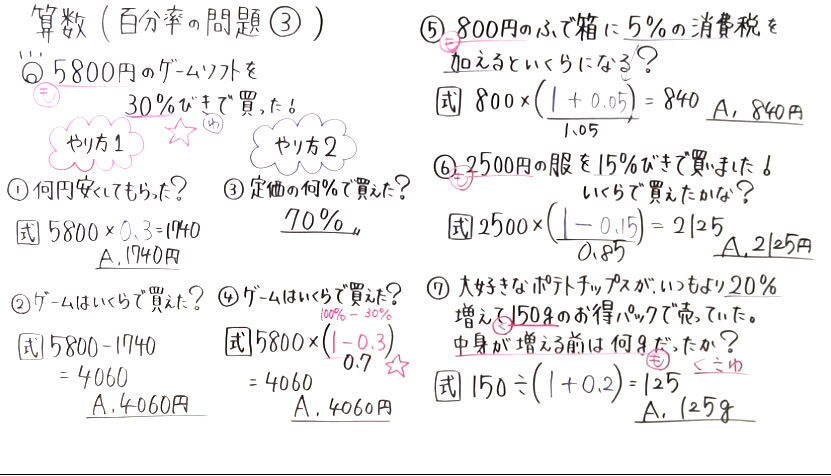 算数(百分率の問題③)
5800円のゲームソフトを
も
30%びきで買った!
わ
やり方1
やり方2
①何円安くしてもらった?
式 5800×0.3=1740
A. 1740円
②ゲームはいくらで買えた?
式 5800-1740
=4060
A. 4060円
③定価の何%で買えた?
70%
④ゲームはいくらで買えた?
100%-30%
式 5800×(1-0.3)
0.7
=4060
A. 4060円
⑤800円のふで箱に5%の消費税を
も
加えるといくらになる?
式 800×(1+0.05)=840 A. 840円
1.05
⑥2500円の服を15%びきで買いました!
も
いくらで買えたかな?
式 2500×(1-0.15)=2125
0.85
A. 2125円
⑦大好きなポテトチップスが、いつもより20%
増えて150gのお得パックで売っていた。
く
中身が増える前は何gだったか?
も
く÷わ
式 150÷(1+0.2)=125
A. 125g